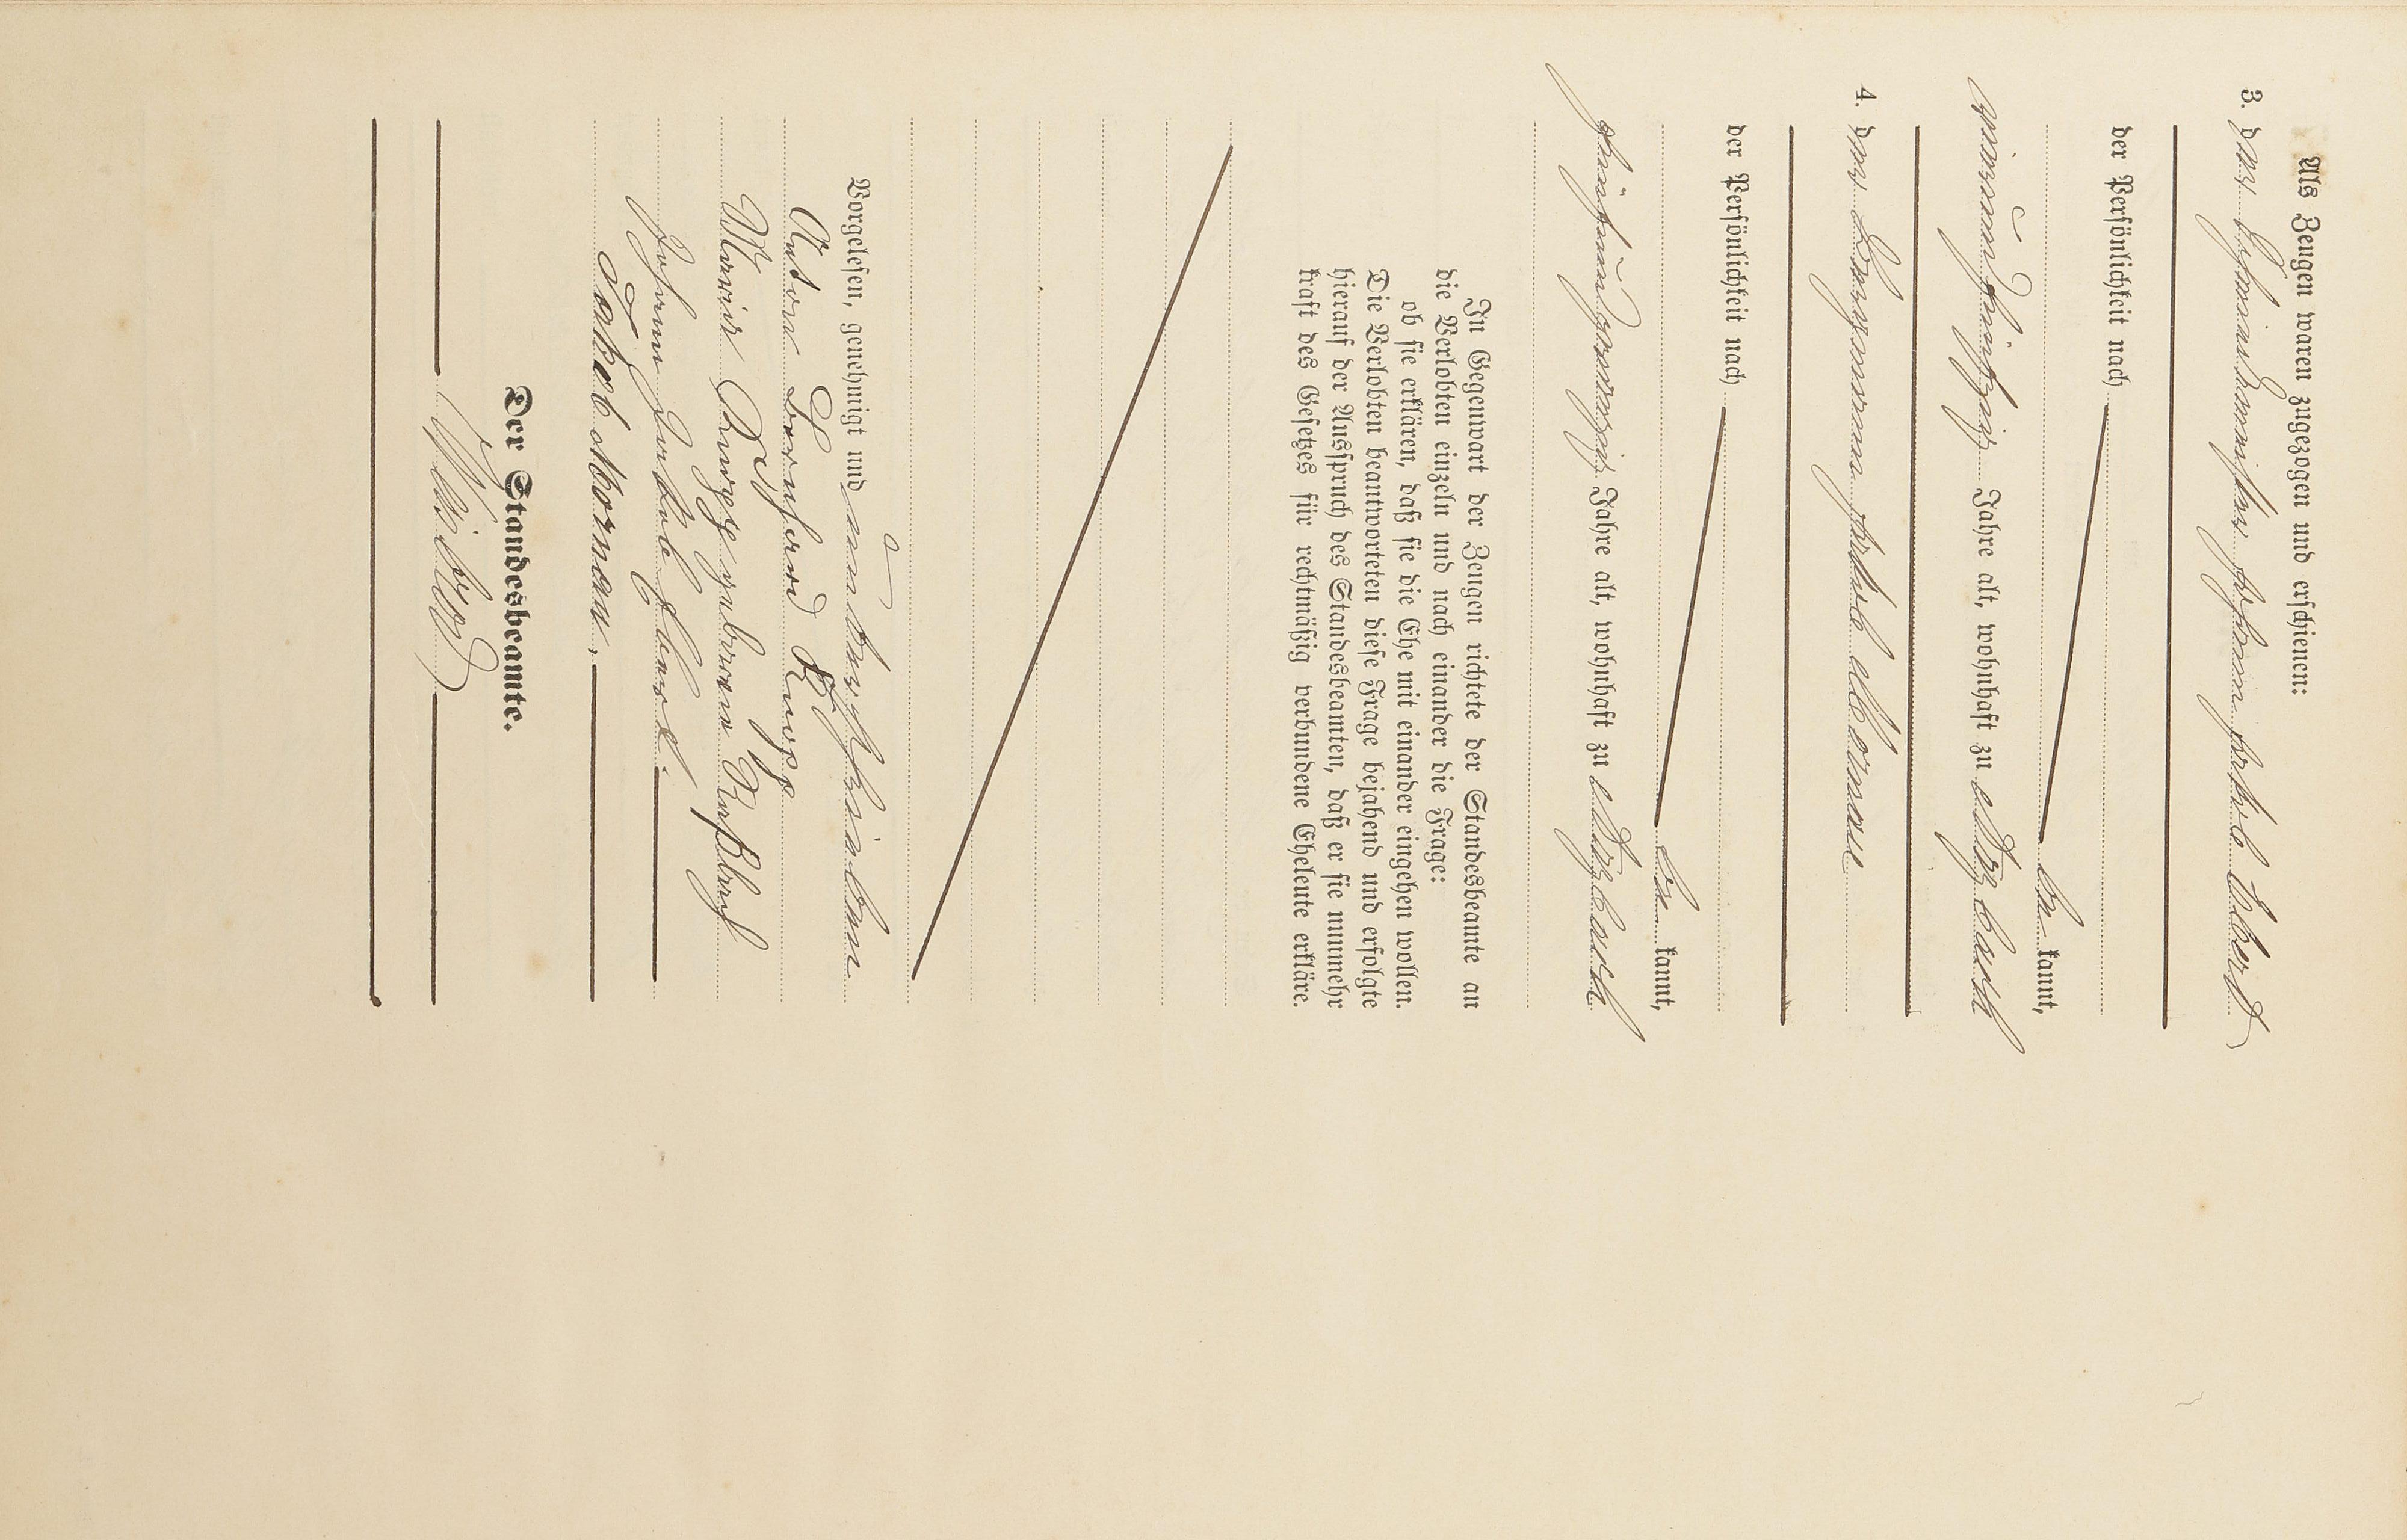 Als Zeugen waren zugezogen und erschienen:
3. der Johann Jakob Ebert
der Persönlichkeit nach
be kannt,
vierundfünfzig Jahre alt, wohnhaft zu
4. der Bergmann Jakob Mornau
der Persönlichkeit nach
be kannt,
fünfundzwanzig Jahre alt, wohnhaft zu
In Gegenwart der Zeugen richtete der Standesbeamte an
die Verlobten einzeln und nach einander die Frage:
ob sie erklären, daß sie die Ehe mit einander eingehen wollen.
Die Verlobten beantworteten diese Frage bejahend und erfolgte
hierauf der Ausspruch des Standesbeamten, daß er sie nunmehr
kraft des Gesetzes für rechtmäßig verbundene Eheleute erkläre.
Vorgelesen, genehmigt und unterschrieben
Anton Bernhard
Maria geborene
Johann Jakob Ebert.
Jakob Mornau.
Der Standesbeamte.